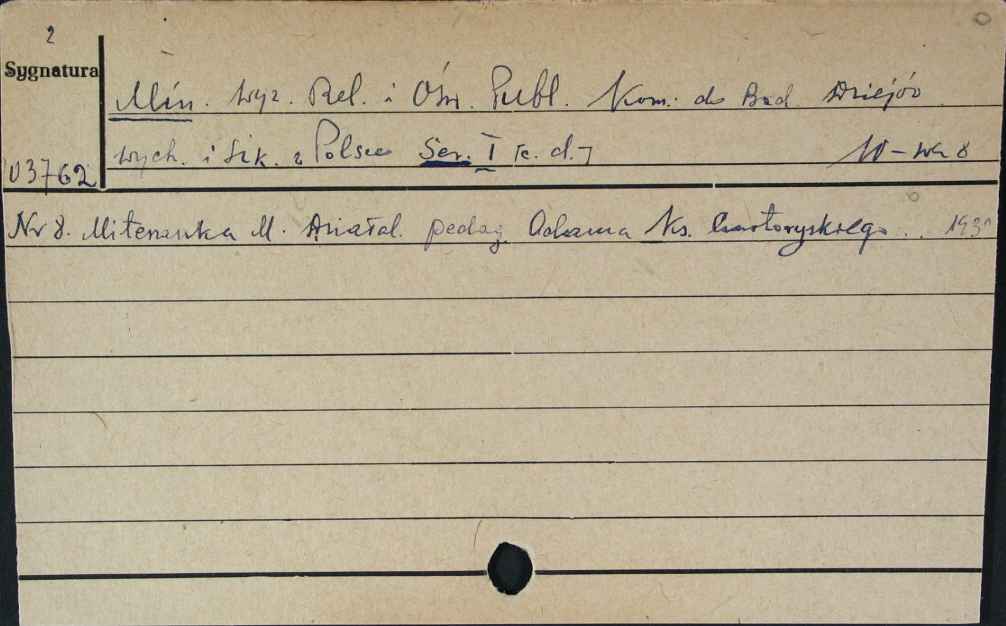 2
Sygnatura
Min. Wyz. Rel. i Ośw. Publ. Kom. do Bad. Dziejów
Wych. i Szk. w Polsce Ser. I [c. d.] W-wa 8
03762
Nr 8. Miterzanka M. Działal. pedag Adama Ks. Czartoryskiego.. 193